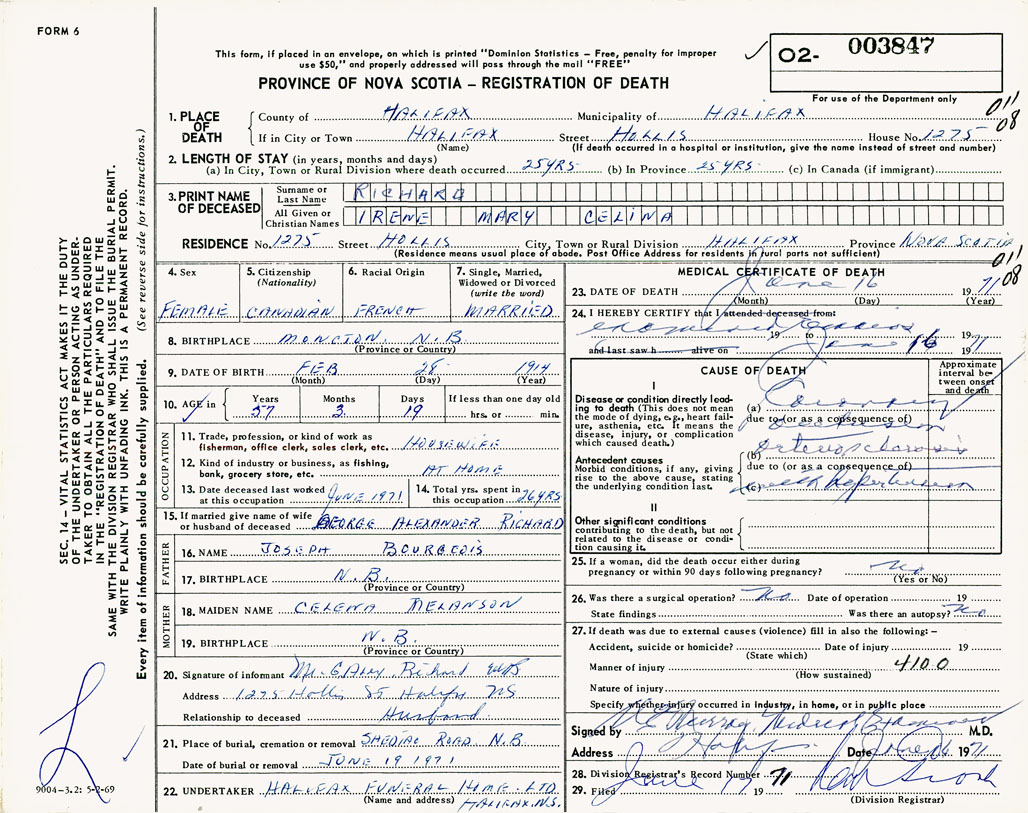 FORM 6
This form, if placed in an envelope, on which is printed "Dominion Statistics – Free, penalty for improper
use $50," and properly addressed will pass through the mail "FREE"
PROVINCE OF NOVA SCOTIA – REGISTRATION OF DEATH
02- 003847
For use of the Department only
011
08
1. PLACE OF DEATH County of HALIFAX Municipality of HALIFAX
If in City or Town HALIFAX Street HOLLIS House No. 1275
(Name) (If death occurred in a hospital or institution, give the name instead of street and number)
2. LENGTH OF STAY (in years, months and days)
(a) In City, Town or Rural Division where death occurred 25 YRS (b) In Province 25 YRS (c) In Canada (if immigrant)
3. PRINT NAME OF DECEASED Surname or Last Name RICHARD
All Given or Christian Names IRENE MARY CELINA
RESIDENCE No. 1275 Street HOLLIS City, Town or Rural Division HALIFAX Province NOVA SCOTIA
(Residence means usual place of abode. Post Office Address for residents in rural parts not sufficient)
011
08
4. Sex 5. Citizenship (Nationality) 6. Racial Origin 7. Single, Married, Widowed or Divorced (write the word)
FEMALE CANADIAN FRENCH MARRIED
8. BIRTHPLACE MONCTON N.B.
(Province or Country)
9. DATE OF BIRTH FEB 28 1914
(Month) (Day) (Year)
10. AGE in Years 57 Months 3 Days 19 If less than one day old hrs. or min.
OCCUPATION
11. Trade, profession, or kind of work as fisherman, office clerk, sales clerk, etc. HOUSEWIFE
12. Kind of industry or business, as fishing, bank, grocery store, etc. AT HOME
13. Date deceased last worked at this occupation JUNE 1971 14. Total yrs. spent in this occupation 26 YRS
15. If married give name of wife or husband of deceased GEORGE ALEXANDER RICHARD
FATHER
16. NAME JOSEPH BOURGEOIS
17. BIRTHPLACE N.B.
(Province or Country)
MOTHER
18. MAIDEN NAME CELENA MELANSON
19. BIRTHPLACE N.B.
(Province or Country)
20. Signature of informant Richard
Address 1275 Hollis St Halifax NS
Relationship to deceased Husband
21. Place of burial, cremation or removal SHEDIAC ROAD N.B.
Date of burial or removal JUNE 19 1971
22. UNDERTAKER HALIFAX FUNERAL HOME LTD
(Name and address) HALIFAX, N.S.
MEDICAL CERTIFICATE OF DEATH
23. DATE OF DEATH June 16 1971
(Month) (Day) (Year)
24. I HEREBY CERTIFY that I attended deceased from:
19 to
and last saw h alive on June 16 1971
CAUSE OF DEATH
Approximate interval between onset and death
I
Disease or condition directly leading to death (This does not mean the mode of dying, e.g., heart failure, asthenia, etc. It means the disease, injury, or complication which caused death.)
(a) Coronary
due to (or as a consequence of)
Antecedent causes
Morbid conditions, if any, giving rise to the above cause, stating the underlying condition last.
(b) arteriosclerosis
due to (or as a consequence of)
(c) hypertension
II
Other significant conditions
contributing to the death, but not related to the disease or condition causing it.
25. If a woman, did the death occur either during pregnancy or within 90 days following pregnancy? No
(Yes or No)
26. Was there a surgical operation? No Date of operation 19
State findings Was there an autopsy? No
27. If death was due to external causes (violence) fill in also the following: –
Accident, suicide or homicide? Date of injury 19
(State which)
Manner of injury 4100
(How sustained)
Nature of injury
Specify whether injury occurred in industry, in home, or in public place
Signed by Murray, Medical Examiner M.D.
Address Halifax Date June 16 1971
28. Division Registrar's Record Number
29. Filed June 17 1971
(Division Registrar)
SEC. 14 – VITAL STATISTICS ACT MAKES IT THE DUTY
OF THE UNDERTAKER OR PERSON ACTING AS UNDER-
TAKER TO OBTAIN ALL THE PARTICULARS REQUIRED
IN THE "REGISTRATION OF DEATH" AND TO FILE THE
SAME WITH THE DIVISION REGISTRAR WHO SHALL ISSUE THE BURIAL PERMIT.
WRITE PLAINLY WITH UNFADING INK. THIS IS A PERMANENT RECORD.
Every item of information should be carefully supplied. (See reverse side for instructions.)
9004-3.2: 5-2-69